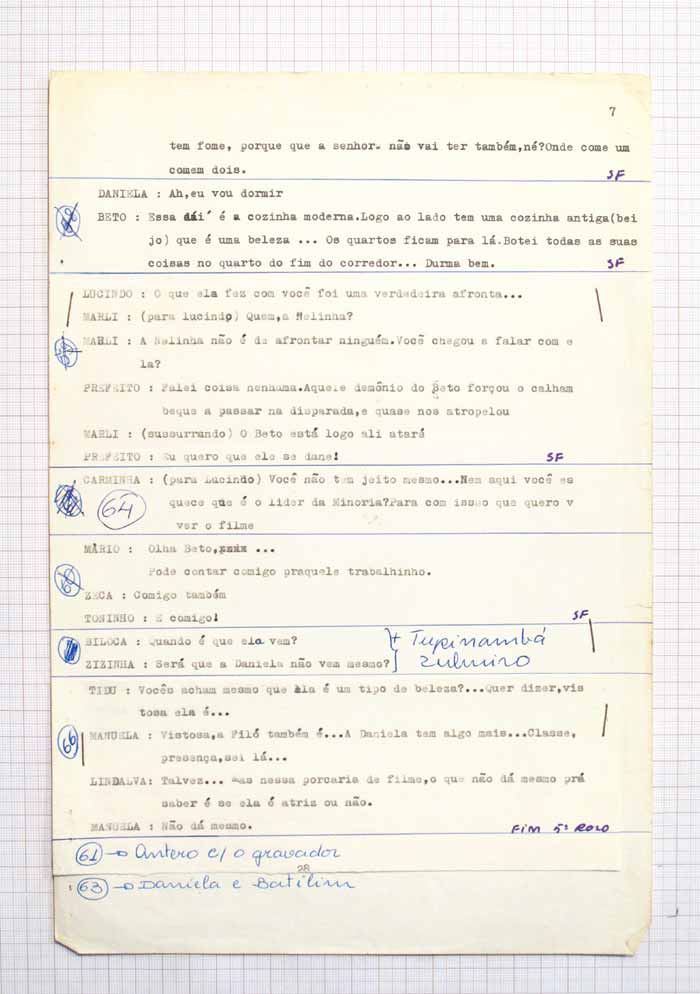 7
tem fome, porque que a senhor. não vai ter também,né?Onde come um
comem dois.
SF
DANIELA : Ah,eu vou dormir
BETO : Essa dái' é a cozinha moderna.Logo ao lado tem uma cozinha antiga(bei
jo) que é uma beleza ... Os quartos ficam para lá.Botei todas as suas
coisas no quarto do fim do corredor... Durma bem. SF
LUCINDO : O que ela fez com você foi uma verdadeira afronta...
MARLI : (para lucindo) Quem,a Nelinha?
MARLI : A Nelinha não é de afrontar ninguém.Você chegou a falar com e
la?
PREFEITO : Falei coisa nenhuma.Aquele demônio do Beto forçou o calham
beque a passar na disparada,e quase nos atropelou
MARLI : (sussurrando) O Beto está logo ali atará
PREFEITO : Eu quero que ele se dane! SF
CARMINHA : (para Lucindo) Você não tem jeito mesmo...Nem aqui você es
64 quece que é o lider da Minoria?Para com issoo que quero v
ver o filme
MÁRIO : Olha Beto, ...
Pode contar comigo praquele trabalhinho.
ZECA : Comigo também
TONINHO : E comigo! SF
BILOCA : Quando é que ela vem? + Tupinambá
ZIZINHA : Será que a Daniela não vem mesmo? zulmiro
TIDU : Vocês acham mesmo que ela é um tipo de beleza?...Quer dizer,vis
tosa ela é...
66 MANUELA : Vistosa,a Filó também é...A Daniela tem algo mais...Classe,
presença,sei lá...
LINDALVA: Talvez... mas nessa porcaria de filme,o que não dá mesmo prá
saber é se ela é atriz ou não.
MANUELA : Não dá mesmo. FIM 5º ROLO
61 → Antero c/ o gravador
28
63 → Daniela e Batilim